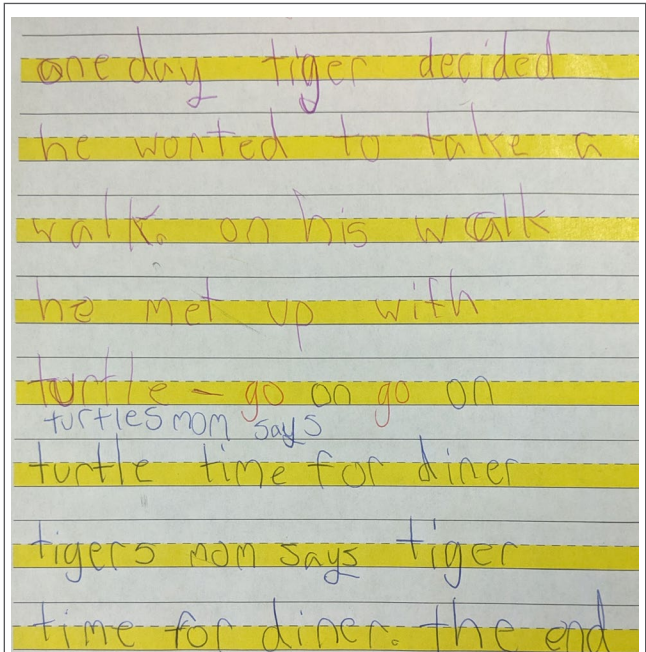 one day tiger decided
he wonted to take a
walk. on his walk
he met up with
turtle - go on go on
turtles mom says
turtle time for diner
tigers mom says tiger
time for diner. the end